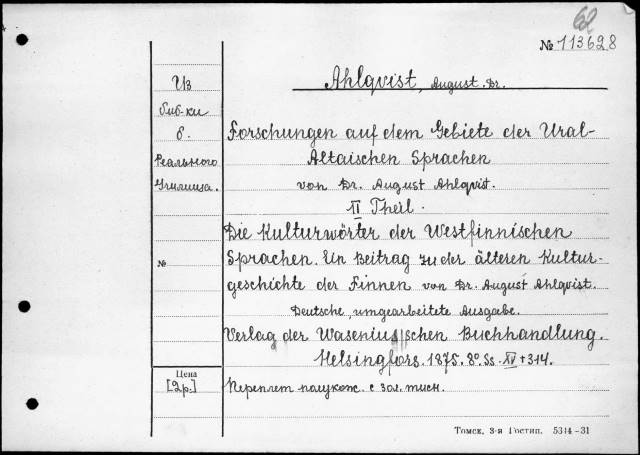 62
№ 113628
Ahlqvist, August. Dr.
Из
биб-ки
б.
Реального
Училища.
Forschungen auf dem Gebiete der Ural-
Altaischen Sprachen
von Dr. August Ahlqvist.
II Theil.
Die Kulturwörter der Westfinnischen
№
Sprachen. Un Beitrag zu der älteren Kultur-
geschichte der Finnen von Dr. August Ahlqvist.
Deutsche, umgearbeitete Ausgabe.
Verlag der Wasenius'schen Buchhandlung.
Helsingfors. 1875. 8º. Ss. XV + 314.
Цена
[2р.]
Переплет полукож. с зол. тисн.
Томск, 3-я Гостип. 5344-31